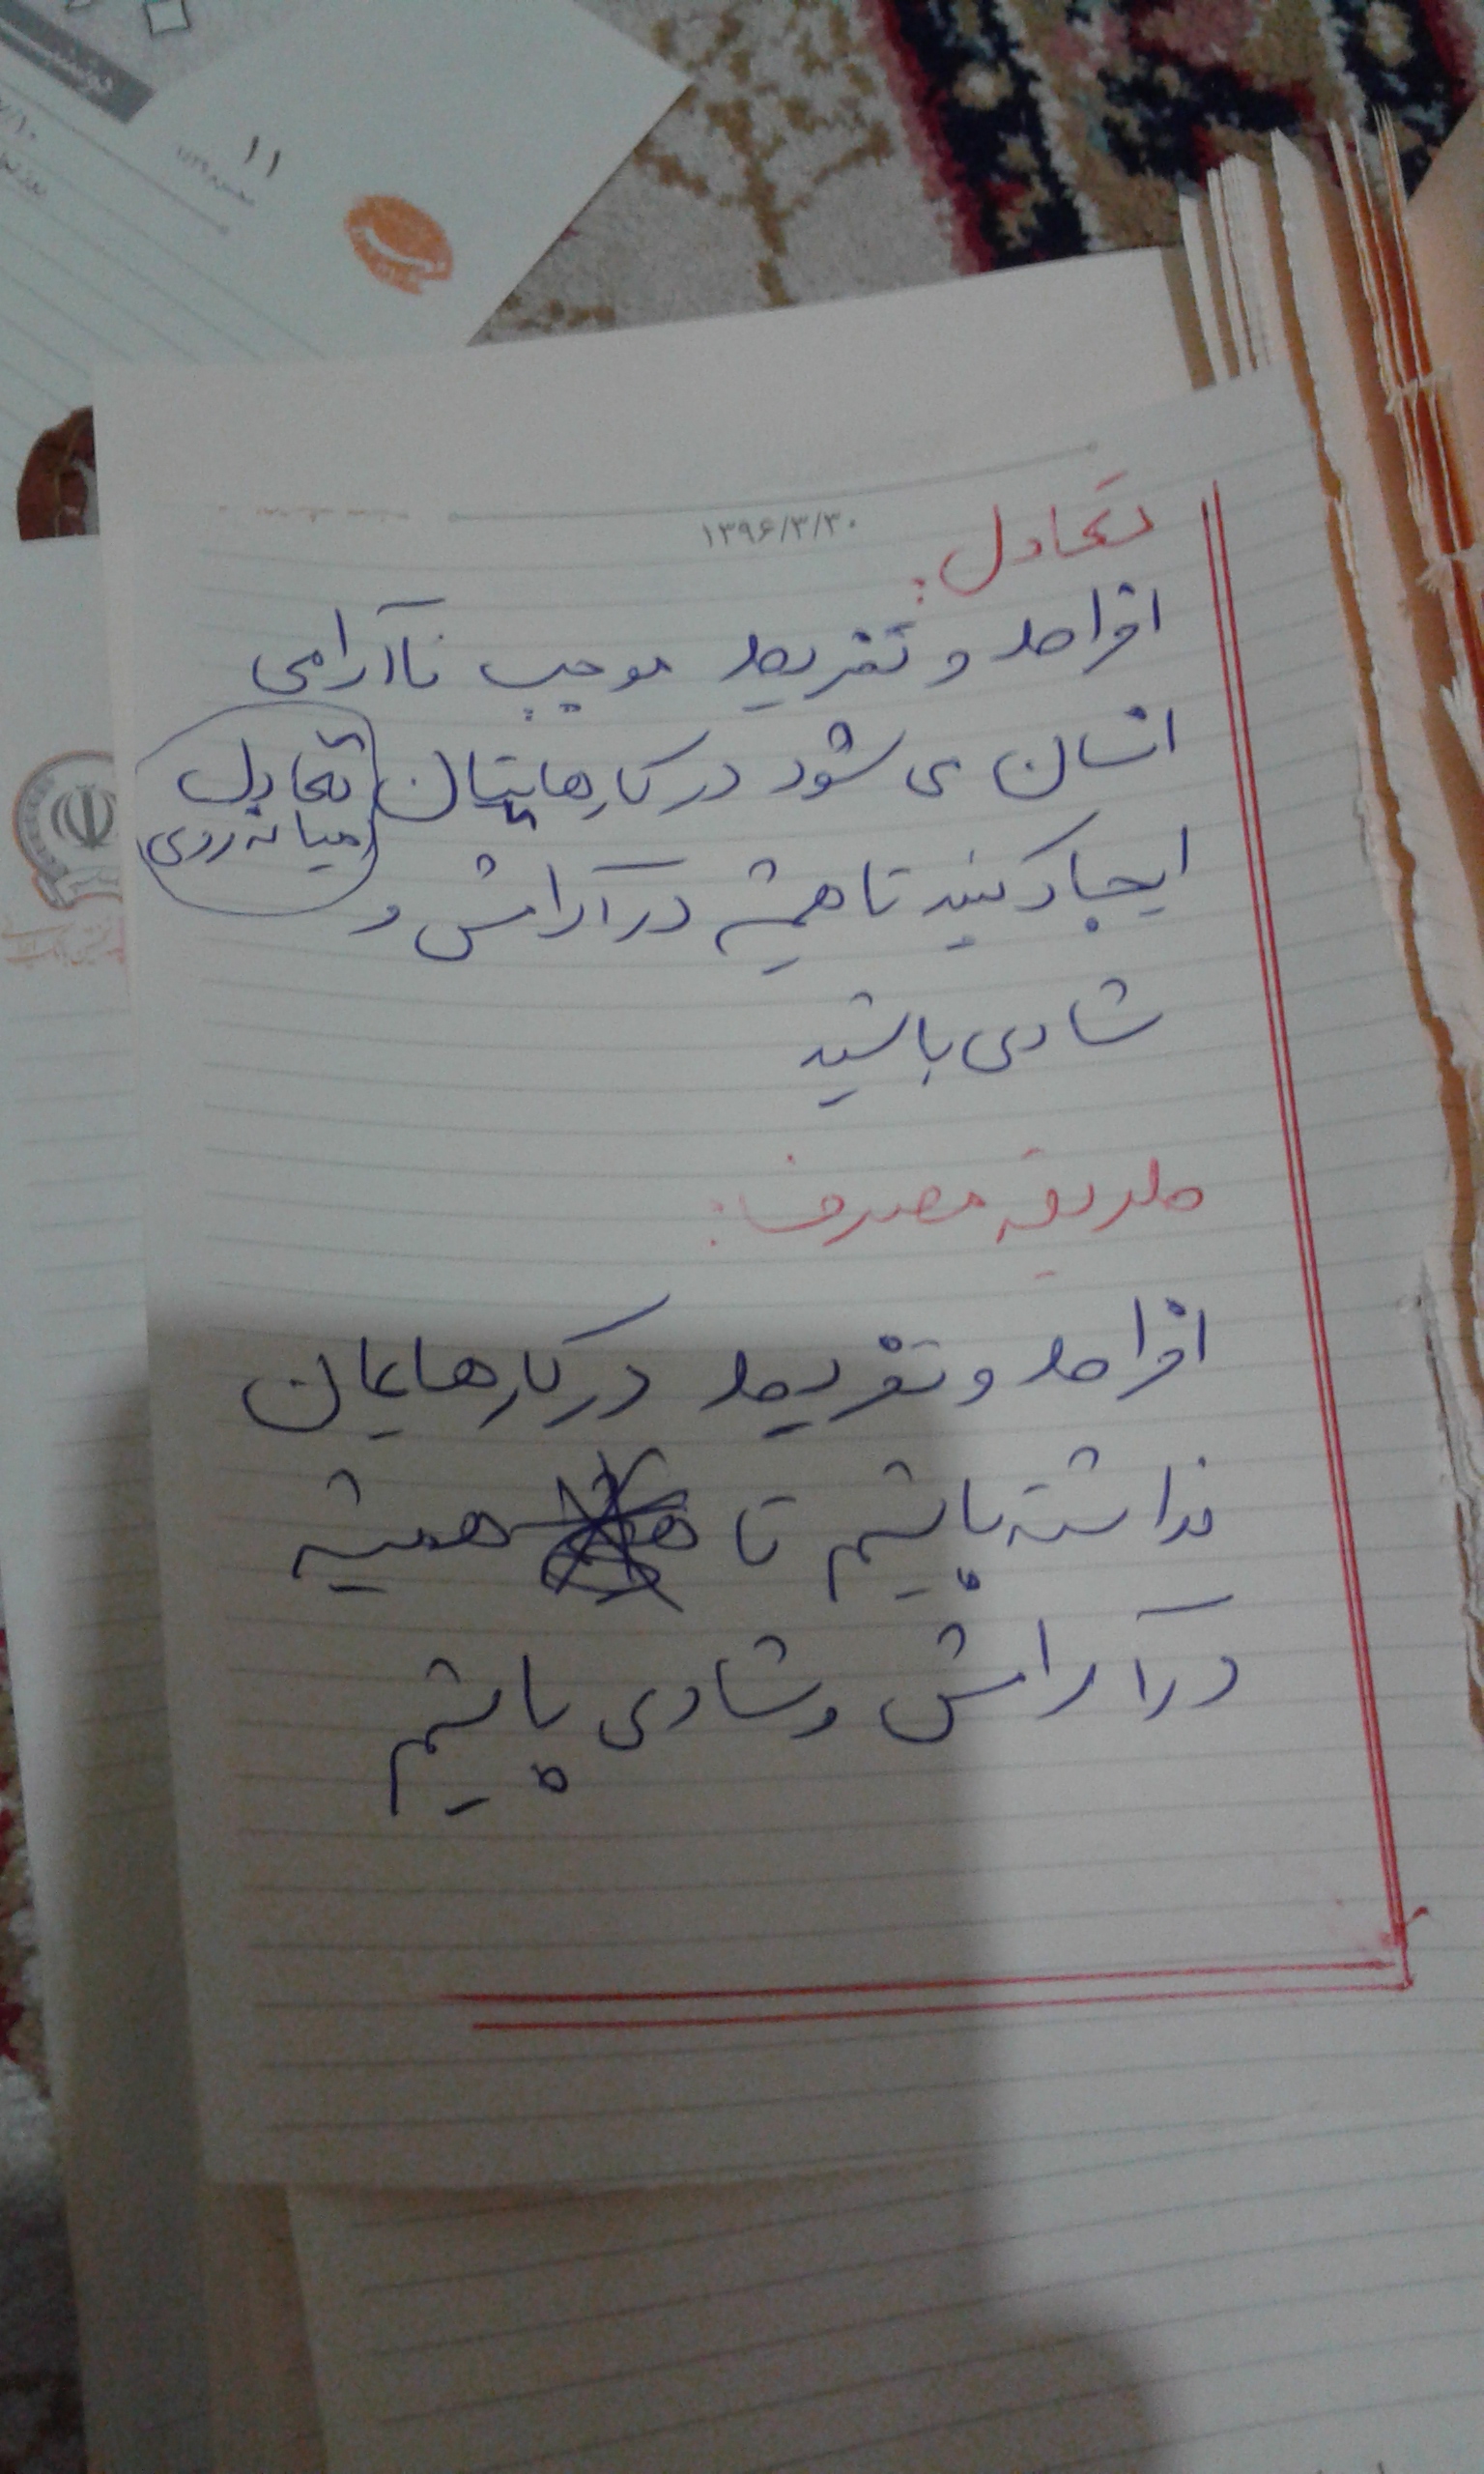 ۱۱
۱۳۹۶/۳/۳۰
تعادل:
افراط و تفریط موجب ناآرامی
انسان می شود در کارهایتان تعادل
(میانه روی
ایجاد کنید تا همیشه در آرامش و
شادی باشید
طریقه مصرف:
افراط و تفریط در کارهایمان
نداشته باشیم تا همیشه
در آرامش و شادی باشیم